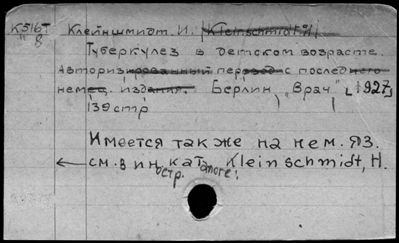 К516т Клейншмидт. И. (Kleinschmidt H)
"8 Туберкулез в детском возрасте.
Авторизированный перевод с последнего
немец. издания. Берлин, "Врач" [1927]
139 стр
Имеется также на нем. яз.
← см. в ин. кат. Kleinschmidt, H.
остр.